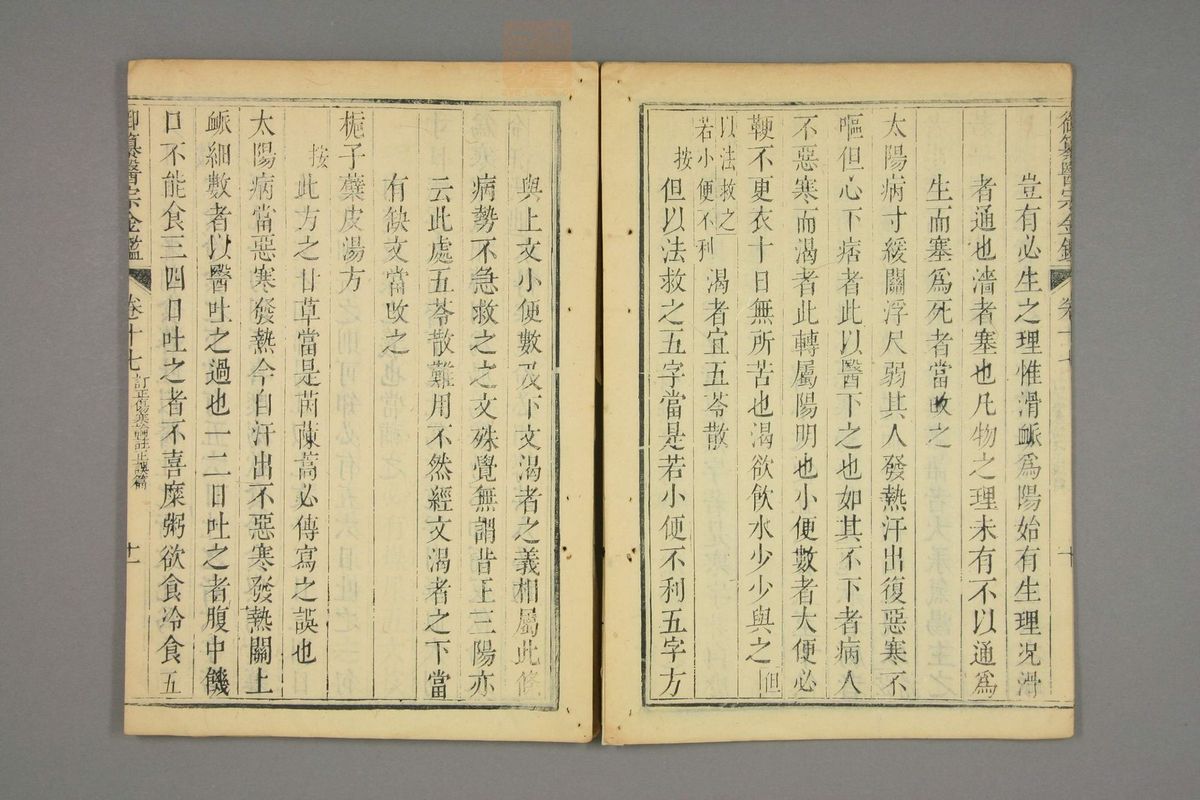 豈有必生之理惟滑衇爲陽始有生理况滑
者通也濇者塞也凡物之理未有不以通爲
生而塞爲死者當攺之
太陽病寸緩關浮尺弱其人發熱汗出復惡寒不
嘔但心下痞者此以醫下之也如其不下者病人
不惡寒而渴者此轉屬陽明也小便數者大便必
鞕不更衣十日無所苦也渴欲飲水少少與之但
以法救之
若小便不利
渴者宜五苓散
按但以法救之五字當是若小便不利五字方
與上文小便數及下文渴者之義相屬此條
病勢不急救之之文殊覺無謂昔王三陽亦
云此處五苓散難用不然經文渴者之下當
有缺文當攺之
梔子蘗皮湯方
按此方之甘草當是茵蔯蒿必傳寫之誤也
太陽病當惡寒發熱今自汗出不惡寒發熱關上
衇細數者以醫吐之過也一二日吐之者腹中饑
口不能食三四日吐之者不喜糜粥欲食冷食五
御纂醫宗金鑑 卷十七 訂正傷寒論註正誤篇 十一